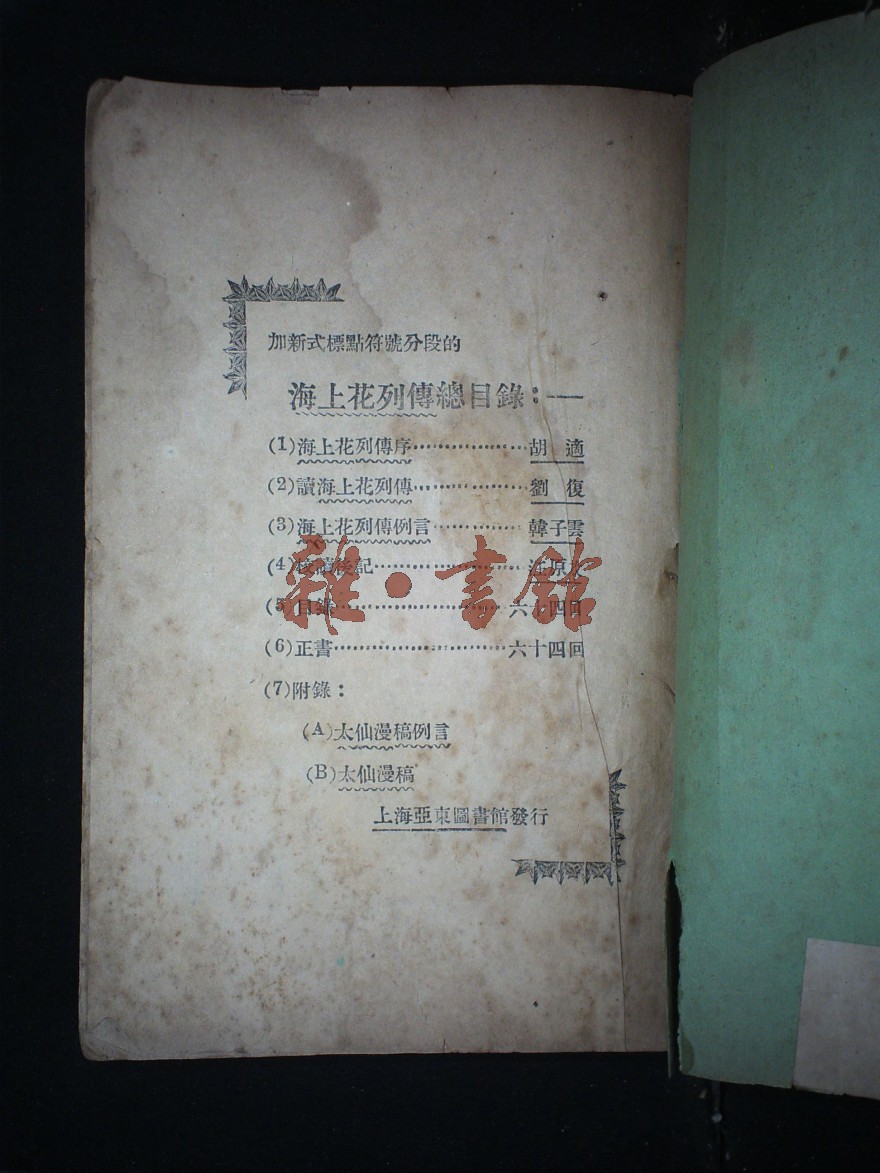 加新式標點符號分段的
海上花列傳總目錄：——
(1)海上花列傳序………………胡適
(2)讀海上花列傳………………劉復
(3)海上花列傳例言……………韓子雲
(4)校讀後記……………………汪原
(5)目錄…………………………六十四回
(6)正書…………………………六十四回
(7)附錄：
(A)太仙漫稿例言
(B)太仙漫稿
上海亞東圖書館發行
雜·書館